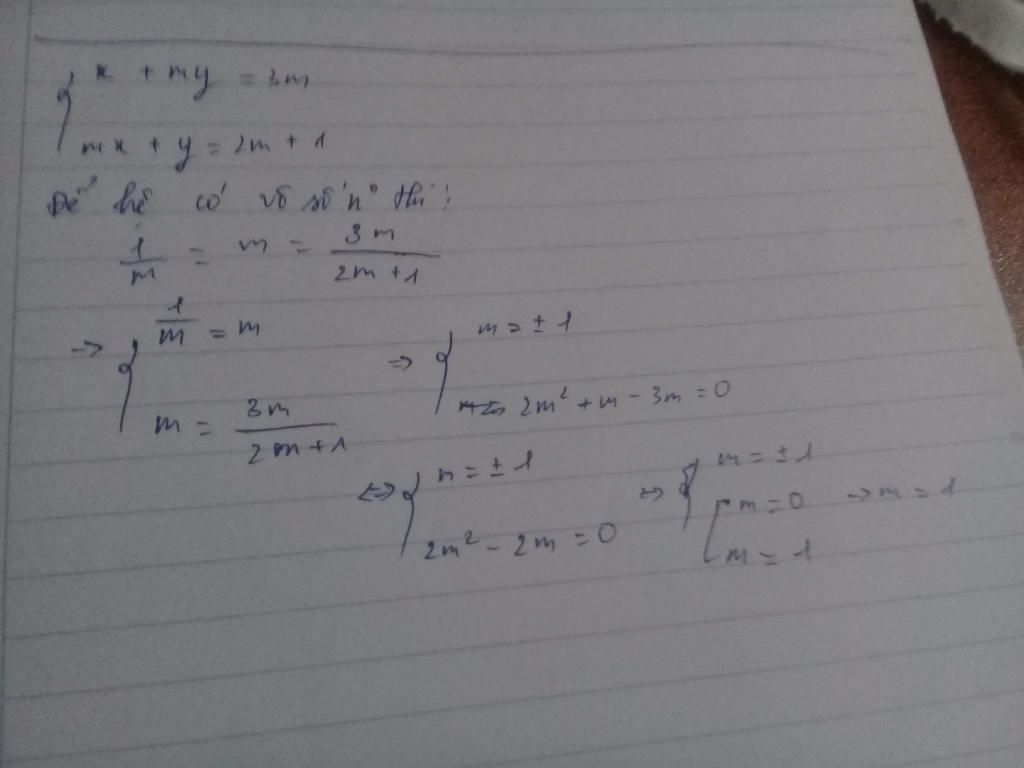 x + my = 3m
mx + y = 2m + 1
Để hệ có vô số n° thì:
1/m = m = 3m/(2m+1)
→ { 1/m = m ⇒ { m = ± 1
m = 3m/(2m+1) 2m² + m - 3m = 0
⇔ { m = ± 1 ⇔ { m = ± 1
2m² - 2m = 0 [ m = 0 → m = 1
m = 1